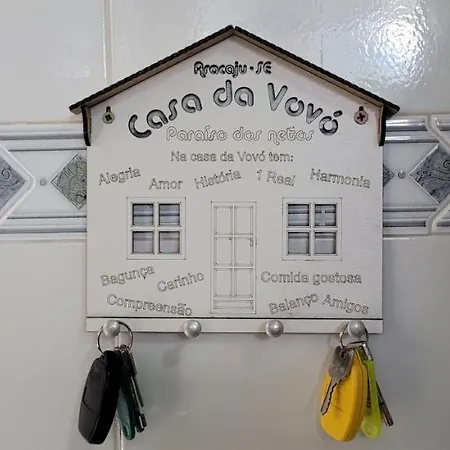 Aracaju - SE
Casa da Vovó
Paraíso dos netos
Na casa da Vovó tem:
Alegria Amor História 1 Real Harmonia
Bagunça Carinho Comida gostosa
Compreensão Balanço Amigos